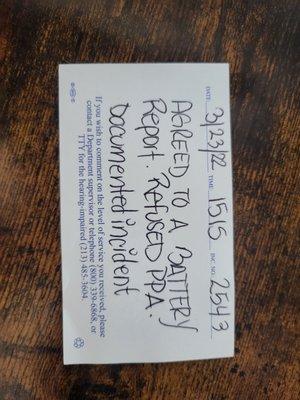 DATE 3/23/22 TIME: 1515 INC. NO. 2543
AGREED TO A BATTERY
Report. Refused PPA.
Documented incident
If you wish to comment on the level of service you received, please
contact a Department supervisor or telephone (800) 339-6868, or
TTY for the hearing-impaired (213) 485-3604.